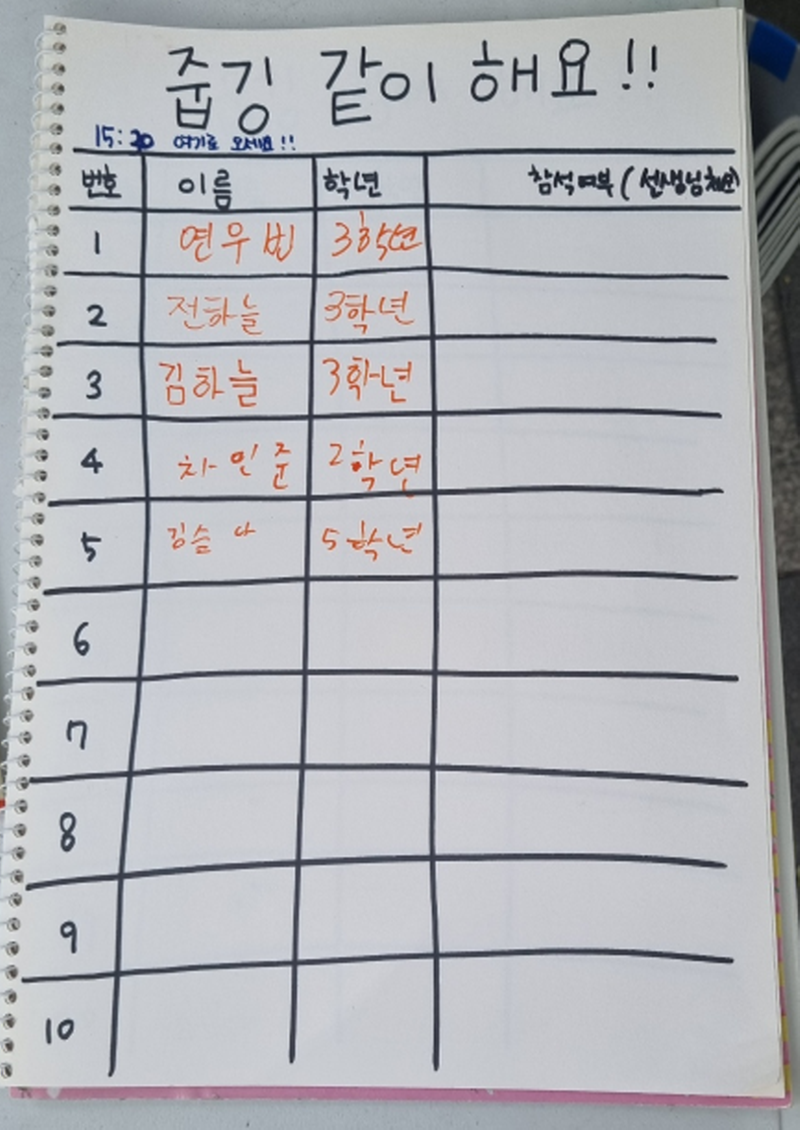 줍깅 같이 해요!!
15:20 여기로 오세요!!
번호 이름 학년 참석여부 (선생님체크)
1 연우빈 3학년
2 전하늘 3학년
3 김하늘 3학년
4 차인준 2학년
5 김슬아 5학년
6
7
8
9
10